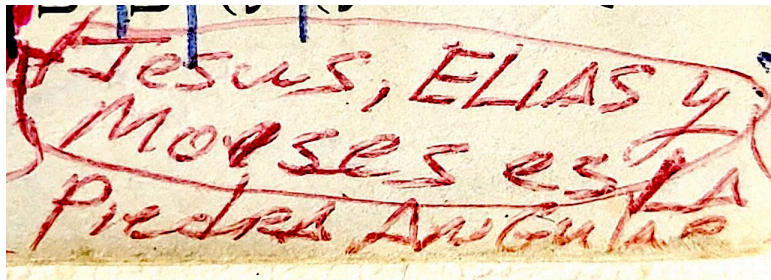 Jesus, ELIAS y
Moises es LA
PiedRA ANGulAR